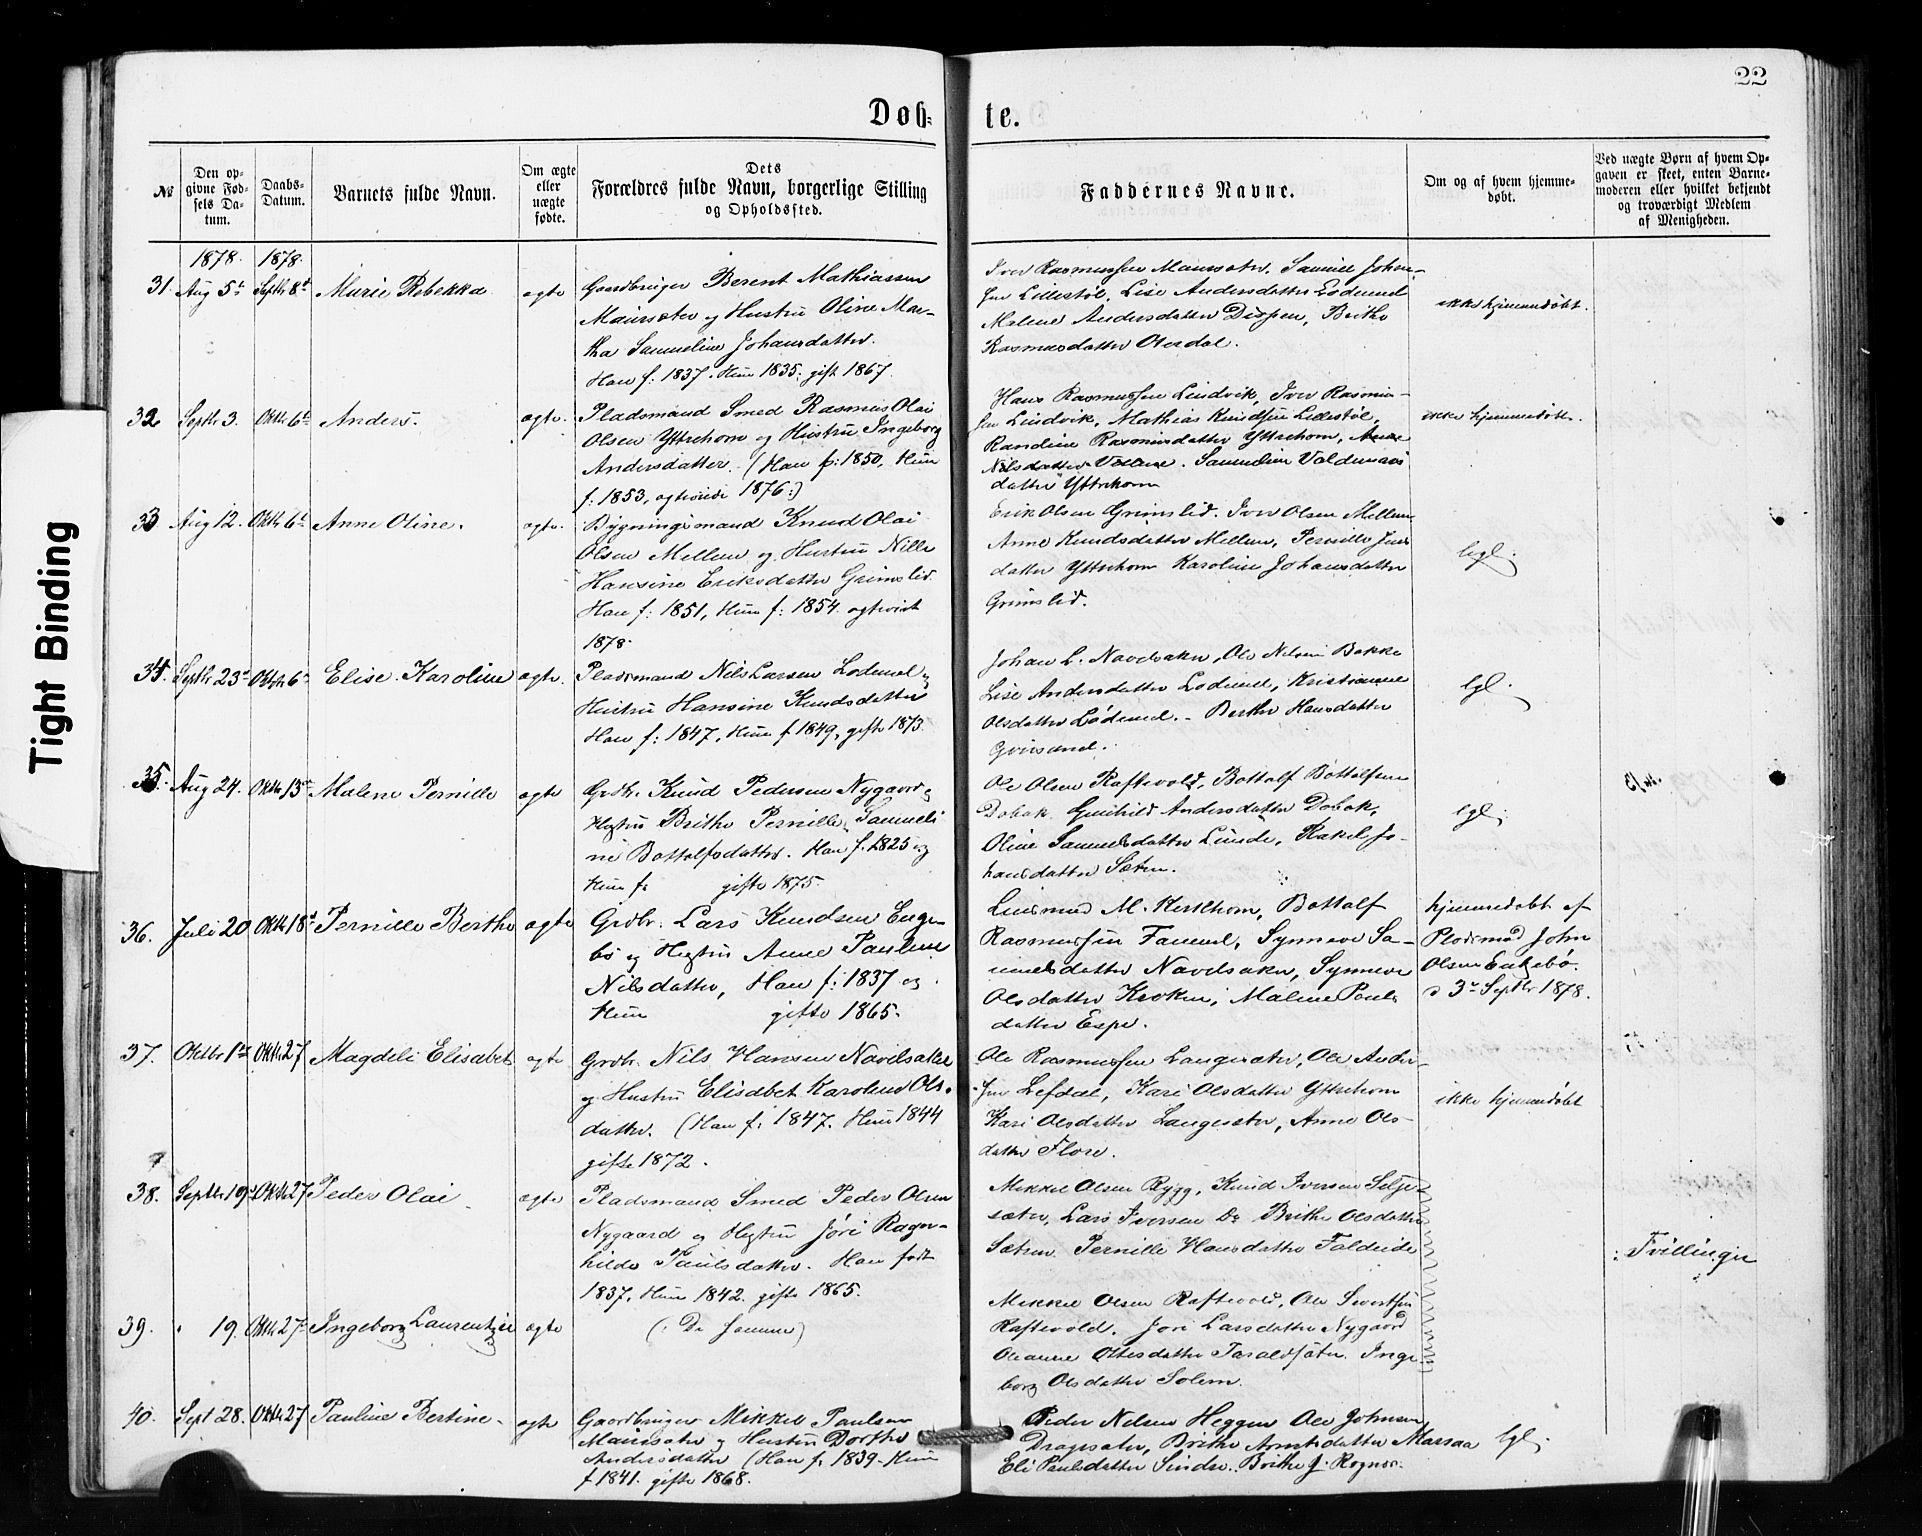 22
Døb-
te.
Tight Binding
№
Den op-
givne Fød-
sels Da-
tum.
Daabs-
Datum.
Barnets fulde Navn.
Om ægte
eller
uægte
fødte.
Dets
Forældres fulde Navn, borgerlige Stilling
og Opholdssted.
Faddernes Navne.
Om og af hvem hjemme-
døbt.
Ved uægte Børn af hvem Op-
gaven er skeet, enten Barne-
moderen eller hvilket bekjendt
og troværdigt Medlem
af Menigheden.
1878. 1878.
31. Aug 5t Septbr 8d Marie Rebekka ægte
Gaardbruger Berent Mathiassen
Maurseter og Hustru Oline Mar-
tha Sameline Johansdatter.
Han f: 1837. Hun 1835; gift 1867.
Iver Rasmussen Maurseter. Samuel Johan-
sen Lillestøl, Lise Andersdatter Lødemel
Malene Andersdatter Diøsen, Brithe
Rasmusdatter Oterdal.
ikke hjemmedøbt.
32 Septbr 3. Oktbr 6t Anders. ægte.
Pladsmand Smed Rasmus Olai
Olsen Yttrehorn og Hustru Ingeborg
Andersdatter. (Han f: 1850, Hun
f: 1853, ægteviede 1876:)
Hans Rasmussen Lindvik, Iver Rasmus-
sen Lindvik, Mathias Knudsen Lillestøl,
Randine Rasmusdatter Yttrehorn, Anne
Nilsdatter. Sameline Valdemars
datter Yttrehorn
ikke hjemmedøbt.
33 Aug 12. Oktbr 6t Anne Oline. ægte.
Bygningsmand Knud Olai
Olsen Mellem og Hustru Nille
Hansine Eriksdatter Grimslid.
Han f: 1851, Hun f: 1854. ægteviet
1878.
Erik Olsen Grimslid. Iver Olsen Mellem
Anne Knudsdatter Mellem, Pernille Jens
datter Yttrehorn Karoline Johansdatter
Grimslid.
ligl.
34. Septbr 23d Oktbr 6t Elise Karoline ægte.
Pladsmand Nils Larsen Lødemel og
Hustru Hansine Knudsdatter
Han f: 1847, Hun f 1849, gifte 1873.
Johan L. Navelsaker, Ole Nilsen Bakke
Lise Andersdatter Lødemel, Kristianne
Olsdatter Lødemel. - Berthe Hansdatter
ligl.
35. Aug 24. Oktbr 13de Malene Pernille ægte
Grdbr. Knud Pedersen Nygaard og
Hustru Brithe Pernille Sameli
ne Bottolfsdatter. Han f. 1825 og
Hun f. gifte 1875.
Ole Olsen Raftevold, Bottolf Bottolfsen
Dobak. Gunhild Andersdatter Dobak,
Oline Samuelsdatter Linde, Rakel Jo-
hansdatter Sætren.
ligl.
36. Juli 20 Oktbr 18d Pernille Berthe ægte
Grdbr. Lars Knudsen Enge-
bø og Hustru Anne Pauline
Nilsdatter, Han f: 1837 og
Hun gifte 1865.
Linsmed M. Herkhom, Bottolf
Rasmussen Tammel, Synneve Sa-
muelsdatter Navelsaker, Synneve
Olsdatter Kroken, Malene Pouls
datter Espe.
hjemmedøbt af
Pladsmnd John
Olsen Engebø.
d 3de Septbr 1878.
37. Oktbr 1ste Oktbr 27 Magdeli Elisabet ægte
Grdbr. Nils Hansen Navelsaker
og Hustru Elisabet Karoline Ols-
datter. (Han f: 1847. Hun 1844
gifte 1872.
Ole Rasmussen Langesæter, Ole Ander-
sen Lefdal, Kari Olsdatter Yttrehorn
Kari Olsdatter Langesæter, Anne Ols-
datter Flore.
ikke hjemmedøbt
38. Septbr 19. Oktbr 27 Peder Olai ægte
Pladsmand Smed Peder Olsen
Nygaard og Hustru Jøri Ragn-
hilde Paulsdatter. Han født
1837, Hun 1842. gifte 1865.
Mikkel Olsen Rygg, Knud Iversen Silje-
sæter, Lars Iversen Do Brithe Olsdatter
Sætren Pernille Hansdatter Faldeide
: Tvillinger
39. " 19. Oktbr 27 Ingeborg Laurentze ægte
(: De Samme)
Mikkel Olsen Raftevold, Ole Sivertsen
Raftevold. Jøri Larsdatter Nygaard
Olianne Ottesdatter Taraldsæter. Inge-
borg Olsdatter Solem.
40. Sept 28. Oktbr 27 Pauline Bertine. ægte
Gaardbruger Mikkel Paulsen
Maurseter og Hustru Dorthe
Andersdatter (Han f: 1839. Hun
f 1841. gifte 1868.
Peder Nilsen Heggen Ole Johnsen
Dragesæter, Brithe Arntsdatter Marsaa
Eli Paulsdatter Sindre. Brithe J. Rognes.
ligl.